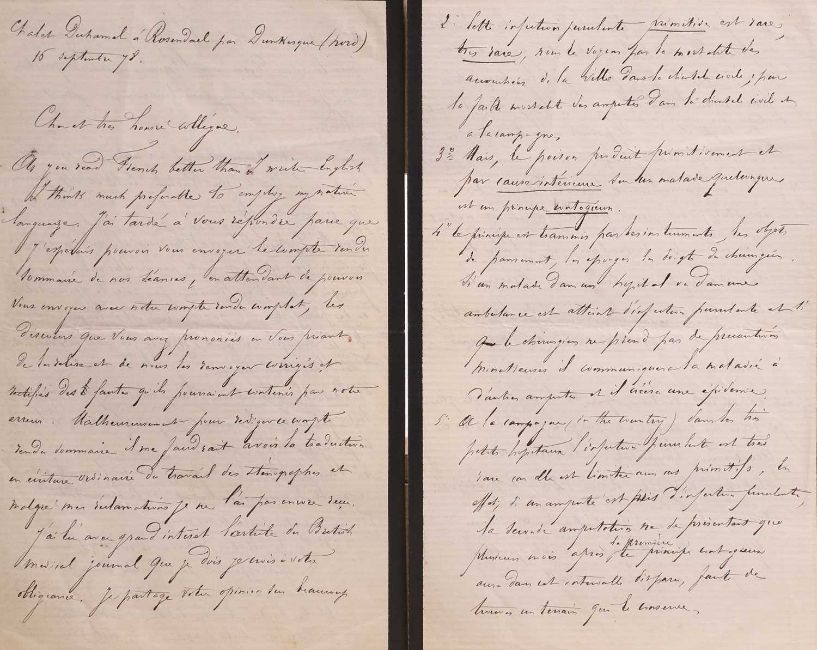 Chalet Duhamel à Rosendael par Dunkerque (nord)
16 septembre 78.
Cher et très honoré collègue.
As you read French better than I write English
I think much preferable to employ my native
language. J'ai tardé à vous répondre parce que
j'espérais pouvoir vous envoyer le compte rendu
sommaire de nos séances, en attendant de pouvoir
vous envoyer avec notre compte rendu complet, les
discours que vous avez prononcés en vous priant
de les relire et de nous les renvoyer corrigés et
rectifiés des fautes qu'ils pourraient contenir par notre
erreur. Malheureusement pour rédiger ce compte
rendu sommaire il me faudrait avoir la traduction
en écriture ordinaire du travail des sténographes et
malgré mes réclamations je ne l'ai pas encore reçu.
J'ai lu avec grand intérêt l'article du British
medical journal que je dois je crois à votre
obligeance. Je partage votre opinion sur beaucoup
2° Cette infection purulente primitive est rare,
très rare, nous le voyons par la mortalité des
accouchées de la ville dans la clientèle civile; par
la faible mortalité des amputés dans la clientèle civile et
à la campagne,
3° Mais, le poison produit primitivement et
par cause intérieure sur un malade quelconque
est un principe contagieux.
4° le principe est transmis par les instruments, les objets
de pansement, les éponges, les doigts du chirurgien.
Si un malade dans un hôpital ou dans une
ambulance est atteint d'infection purulente et si
le chirurgien ne prend pas de précautions
minutieuses il communiquera la maladie à
d'autres amputés et il créera une épidémie.
5° A la campagne (in the country) dans les très
petits hôpitaux l'infection purulente est très
rare car elle est limitée aux cas primitifs, En
effet, si un amputé est pris d'infection purulente,
la seconde amputation ne se présentant que
plusieurs mois après la première le principe contagieux
aura dans cet intervalle disparu, faute de
trouver un terrain qui le conserve,